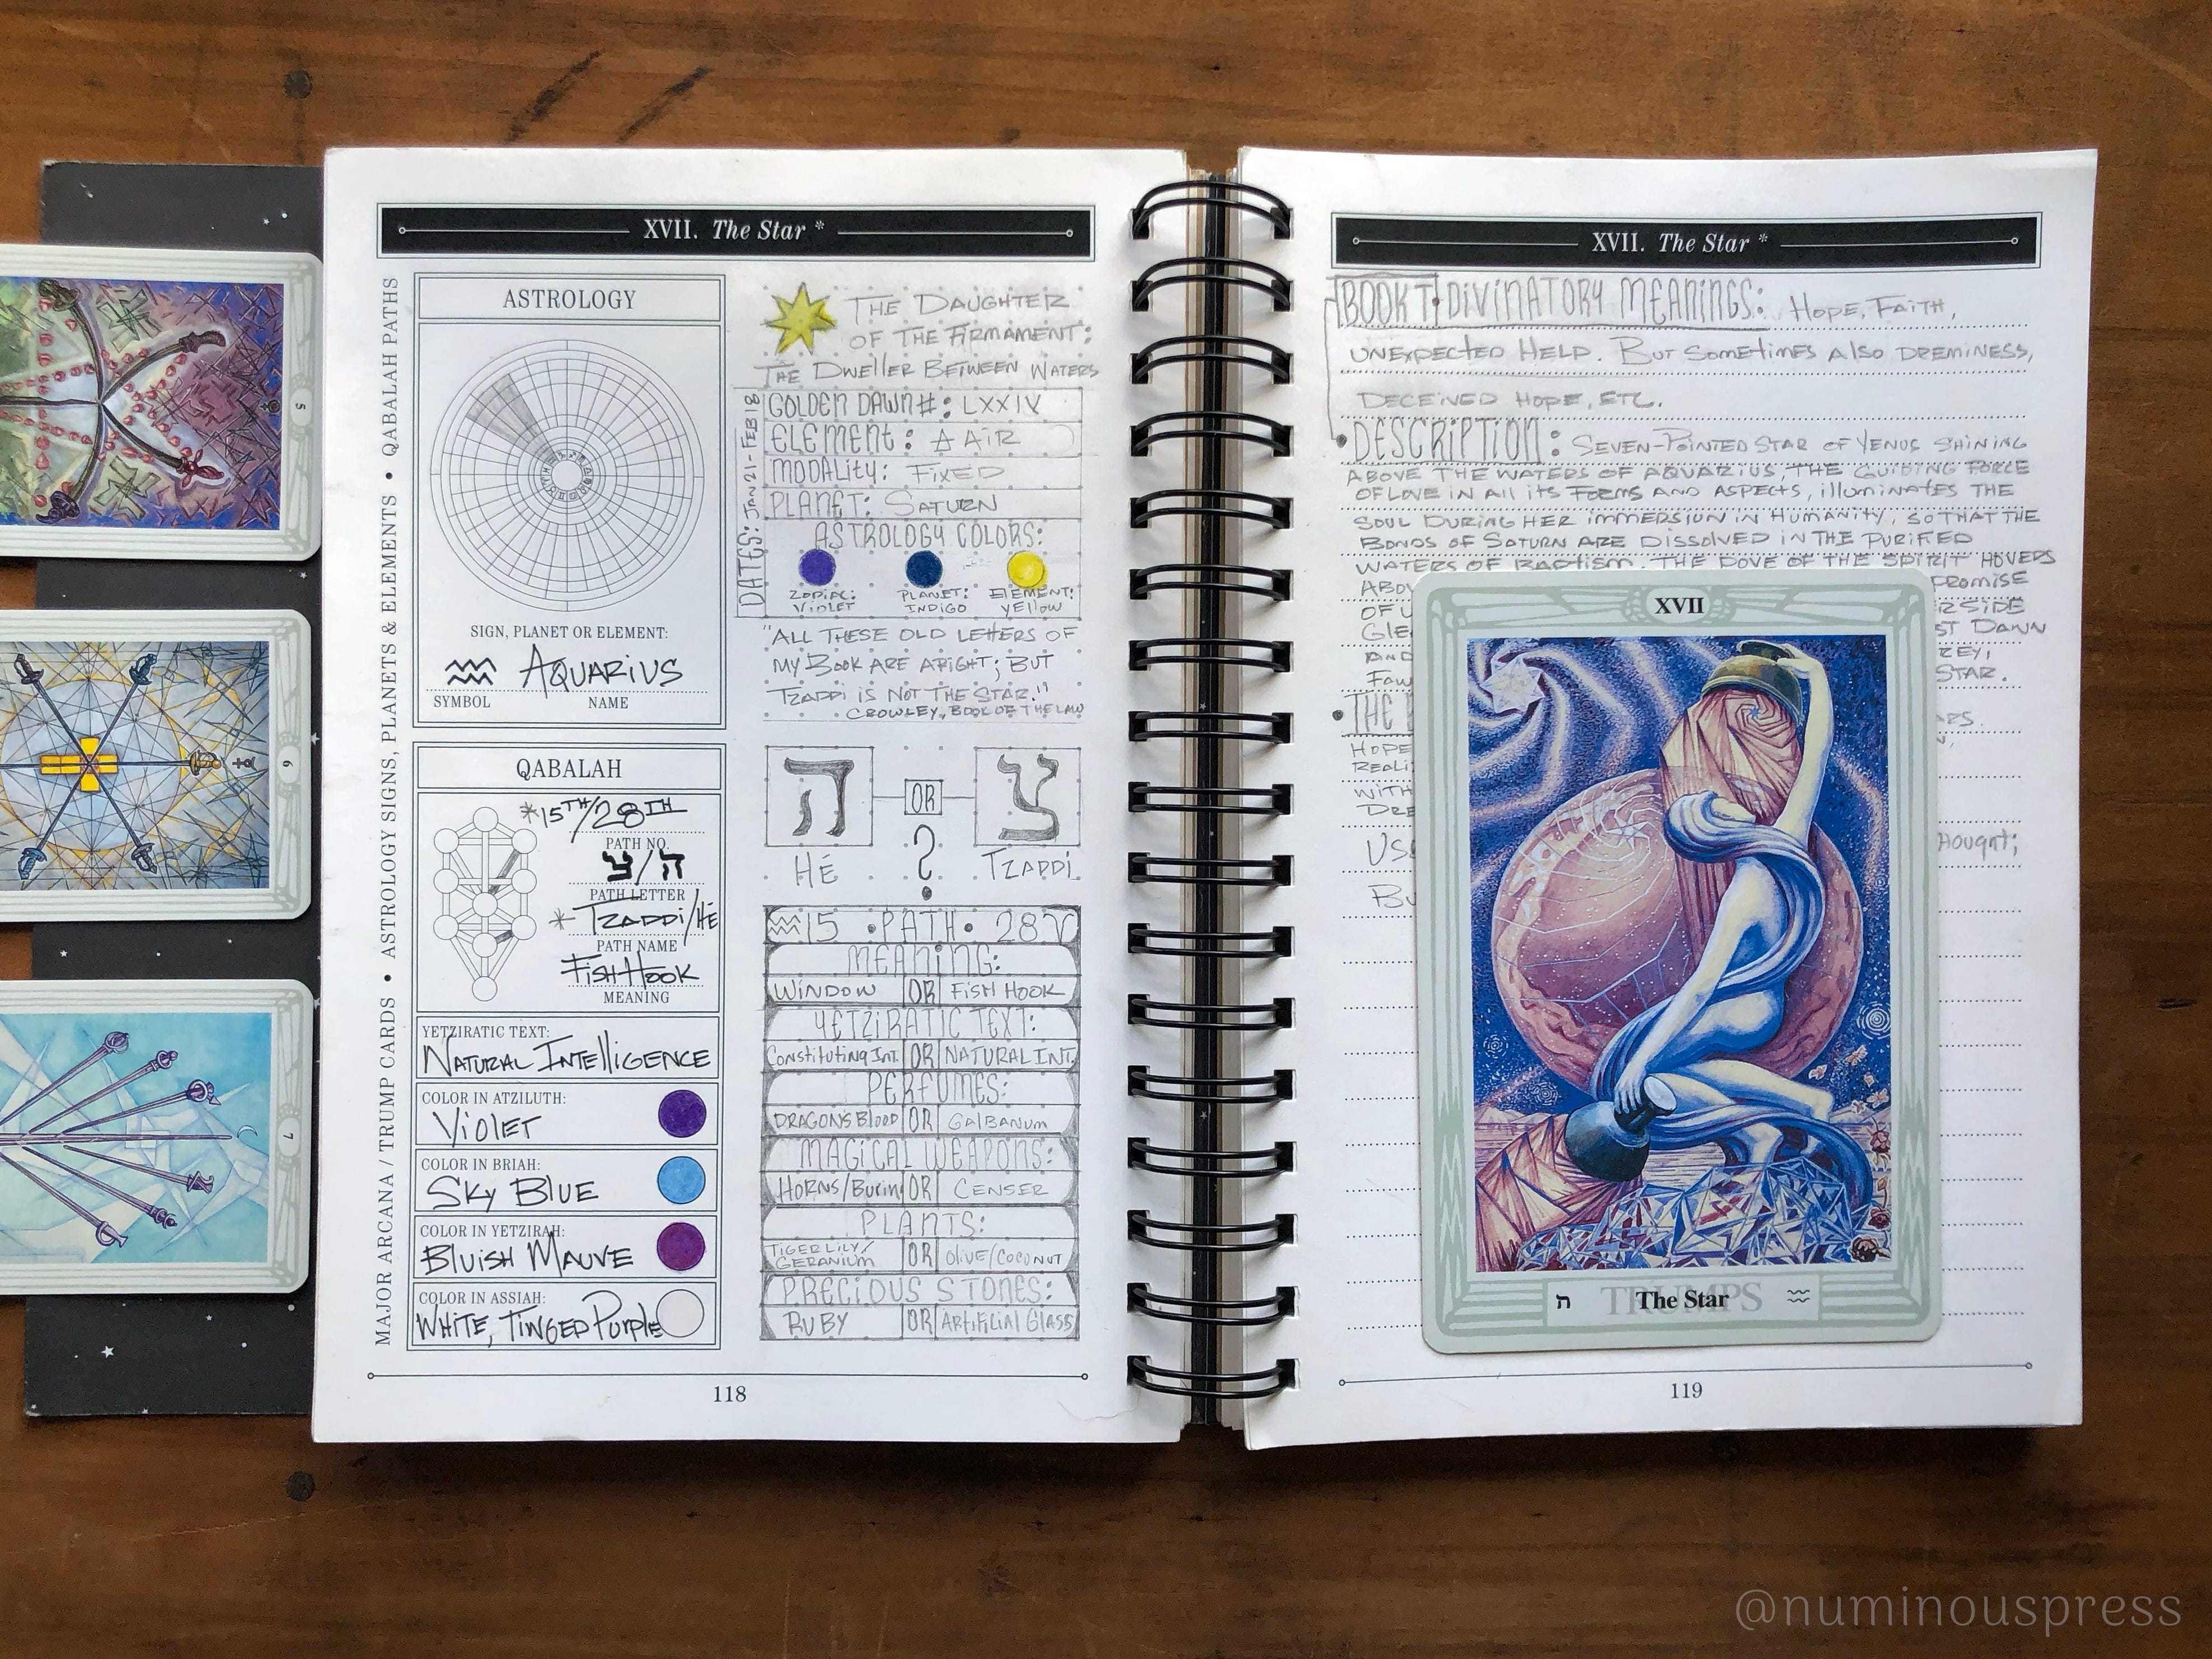 5
6
7
MAJOR ARCANA / TRUMP CARDS • ASTROLOGY SIGNS, PLANETS & ELEMENTS • QABALAH PATHS
XVII. The Star *
ASTROLOGY
SIGN, PLANET OR ELEMENT:
♒ AQUARIUS
SYMBOL NAME
QABALAH
*15TH/28TH
PATH NO.
צ/ה
PATH LETTER
* TZADDI/HÉ
PATH NAME
FISH HOOK
MEANING
YETZIRATIC TEXT:
NATURAL INTELLIGENCE
COLOR IN ATZILUTH:
VIOLET
COLOR IN BRIAH:
SKY BLUE
COLOR IN YETZIRAH:
BLUISH MAUVE
COLOR IN ASSIAH:
WHITE, TINGED PURPLE
THE DAUGHTER
OF THE FIRMAMENT:
THE DWELLER BETWEEN WATERS
DATES: JAN 21-FEB 18
GOLDEN DAWN #: LXXIV
ELEMENT: 🜁 AIR
MODALITY: FIXED
PLANET: SATURN
ASTROLOGY COLORS:
ZODIAC: PLANET: ELEMENT:
VIOLET INDIGO YELLOW
"ALL THESE OLD LETTERS OF
MY BOOK ARE ARIGHT; BUT
TZADDI IS NOT THE STAR."
CROWLEY, BOOK OF THE LAW
ה OR צ
?
HÉ TZADDI
♒ 15 • PATH • 28
MEANING:
WINDOW OR FISH HOOK
YETZIRATIC TEXT:
CONSTITUTING INT. OR NATURAL INT.
PERFUMES:
DRAGONS BLOOD OR GALBANUM
MAGICAL WEAPONS:
HORNS/BURIN OR CENSER
PLANTS:
TIGER LILY/
GERANIUM OR OLIVE/COCONUT
PRECIOUS STONES:
RUBY OR ARTIFICIAL GLASS
118
XVII. The Star *
BOOK T• DIVINATORY MEANINGS: HOPE, FAITH,
UNEXPECTED HELP. BUT SOMETIMES ALSO DREMINESS,
DECEIVED HOPE, ETC.
• DESCRIPTION: SEVEN-POINTED STAR OF VENUS SHINING
ABOVE THE WATERS OF AQUARIUS, THE GUIDING FORCE
OF LOVE IN ALL ITS FORMS AND ASPECTS, ILLUMINATES THE
SOUL DURING HER IMMERSION IN HUMANITY, SO THAT THE
BONDS OF SATURN ARE DISSOLVED IN THE PURIFIED
WATERS OF BAPTISM. THE DOVE OF THE SPIRIT HOVERS
PROMISE
OF
DAWN
AND
STAR.
• THE
HOPE
WITH
THOUGHT;
XVII
ה TRUMPS The Star ♒
119
@numinouspress